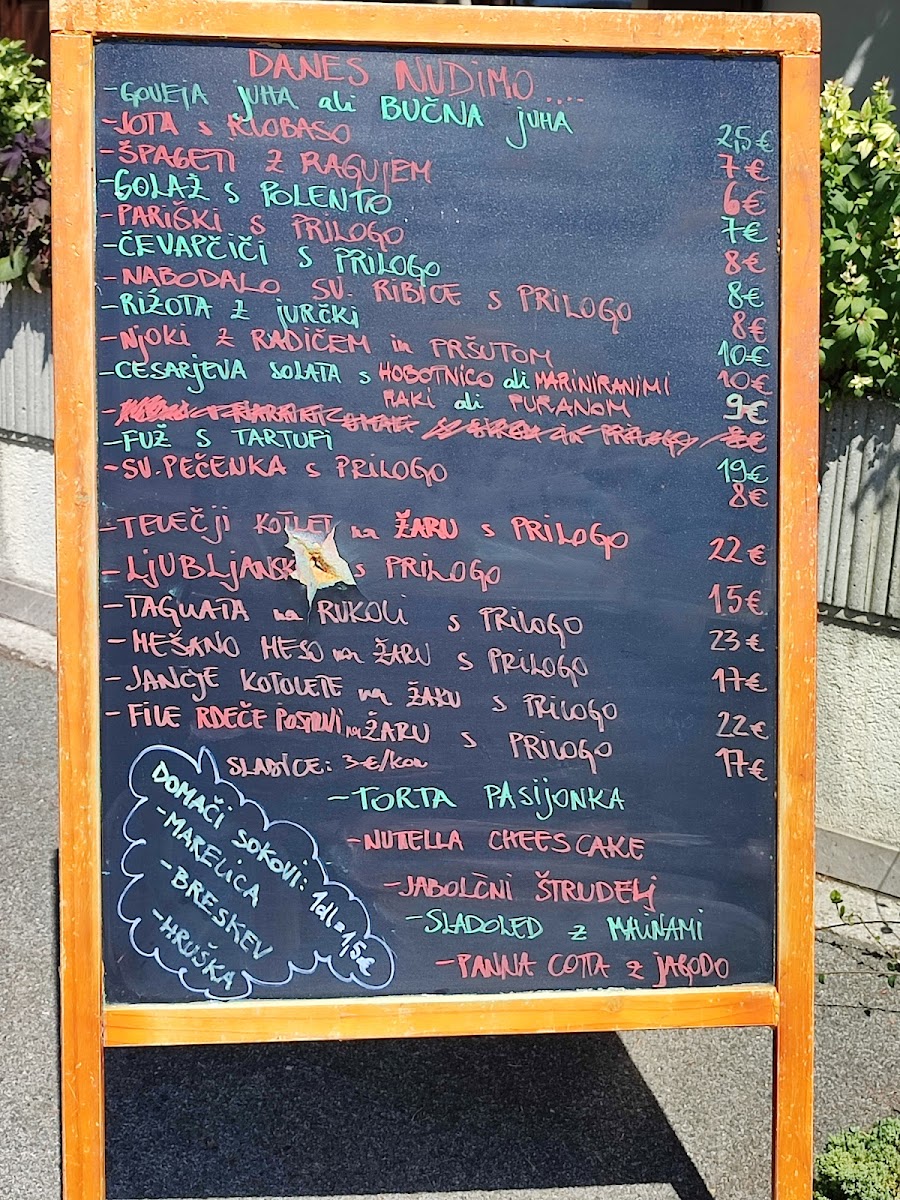 DANES NUDIMO....
-GOVEJA JUHA ali BUČNA JUHA 2,5€
-JOTA s KLOBASO 7€
-ŠPAGETI Z RAGUJEM 6€
-GOLAŽ S POLENTO 7€
-PARIŠKI S PRILOGO 8€
-ČEVAPČIČI S PRILOGO 8€
-NABODALO SV. RIBICE S PRILOGO 8€
-RIŽOTA Z JURČKI 10€
-NJOKI Z RADIČEM in PRŠUTOM 10€
-CESARJEVA SOLATA S HOBOTNICO ali MARINIRANIMI
RAKI ali PURANOM 9€
-FUŽ S TARTUFI 19€
-SV.PEČENKA S PRILOGO 8€
-TELEČJI KOTLET na ŽARU S PRILOGO 22€
-LJUBLJANSK S PRILOGO 15€
-TAGLIATA na RUKOLI S PRILOGO 23€
-MEŠANO MESO na ŽARU S PRILOGO 17€
-JANČJE KOTOLETE na ŽARU S PRILOGO 22€
-FILE RDEČE POSTRVI na ŽARU S PRILOGO 17€
SLADICE: 3€/kom
-TORTA PASIJONKA
-NUTELLA CHEESCAKE
-JABOLČNI ŠTRUDELJ
-SLADOLED Z MALINAMI
-PANNA COTTA Z JAGODO
DOMAČI SOKOVI: 1dl=1,5€
-MARELICA
-BRESKEV
-HRUŠKA